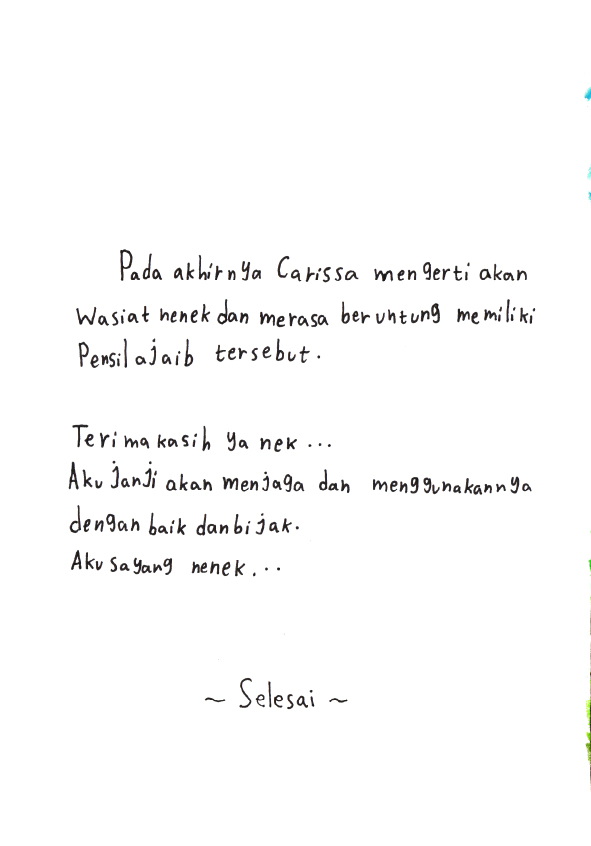 Pada akhirnya Carissa mengerti akan
wasiat nenek dan merasa beruntung memiliki
Pensil ajaib tersebut.
Terima kasih ya nek ...
Aku janji akan menjaga dan menggunakannya
dengan baik dan bijak.
Aku sayang nenek...
~ Selesai ~